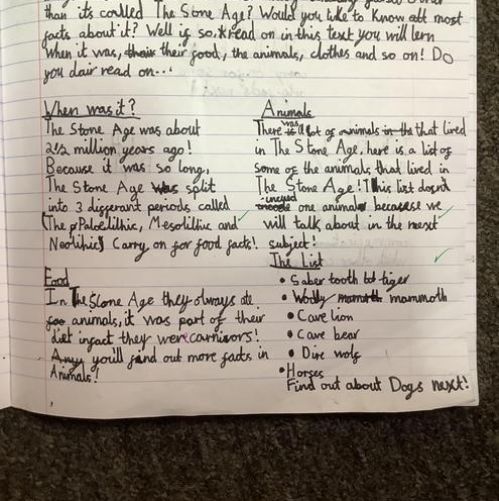 than its coulled The Stone Age? Would you like to know all most
facts about it? Well is so read on in this text you will lern
when it was, their food, the animals, clothes and so on! Do
you dair read on...
When was it?
The Stone Age was about
2½ million years ago!
Because it was so long,
The Stone Age was split
into 3 differant periods called
(The Palaelithic, Mesolithic and
Neolithic) Carry on for food facts!
Food
In The Stone Age they always ate
animals, it was part of their
diet infact they were carnivors!
you'll find out more facts in
Animals!
Animals
There was a lot of animals in the that lived
in The Stone Age, here is a list of
some of the animals that lived in
The Stone Age! This list dosn't
one animal becaese we
will talk about in the next
subject!
The List
• Saber tooth tiger
• Wolly mammoth
• Cave lion
• Cave bear
• Dire wolf
• Horses
Find out about Dogs next!